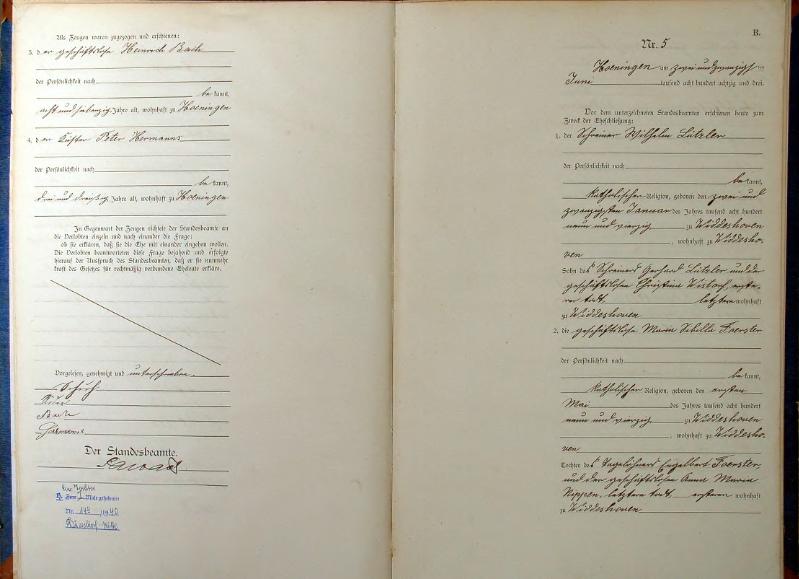 Als Zeugen waren zugezogen und erschienen:
3. der geschäftslose Heinrich Bach
der Persönlichkeit nach
bekannt,
acht und siebenzig Jahre alt, wohnhaft zu Hoeningen
4. der Küster Peter Hermanns
der Persönlichkeit nach
bekannt,
drei und dreißig Jahre alt, wohnhaft zu Hoeningen
In Gegenwart der Zeugen richtete der Standesbeamte an
die Verlobten einzeln und nach einander die Frage:
ob sie erklären, daß sie die Ehe mit einander eingehen wollen.
Die Verlobten beantworteten diese Frage bejahend und erfolgte
hierauf der Ausspruch des Standesbeamten, daß er sie nunmehr
kraft des Gesetzes für rechtmäßig verbundene Eheleute erkläre.
Vorgelesen, genehmigt und unterschrieben.
Bach
Hermanns
Der Standesbeamte.
B.
Nr. 5
Hoeningen am zwei und zwanzigsten
Juni tausend acht hundert achtzig und drei.
Vor dem unterzeichneten Standesbeamten erschienen heute zum
Zweck der Eheschließung:
1. der Schreiner Wilhelm Lützler
der Persönlichkeit nach
bekannt,
katholischer Religion, geboren den zwei und
zwanzigsten Januar des Jahres tausend acht hundert
neun und vierzig zu Widdeshoven
, wohnhaft zu Widdesho-
ven
Sohn des Schreiners Gerhard Lützler und der
geschäftslosen Christina erste-
rer todt, letztere wohnhaft
zu Widdeshoven
2. die geschäftslose Maria Sibilla Foerster
der Persönlichkeit nach
bekannt,
katholischer Religion, geboren den ersten
Mai des Jahres tausend acht hundert
neun und vierzig zu Widdeshoven
, wohnhaft zu Widdesho-
ven
Tochter des Tagelöhners Engelbert Foerster
und der geschäftslosen Anna Maria
letztere todt, ersterer wohnhaft
zu Widdeshoven